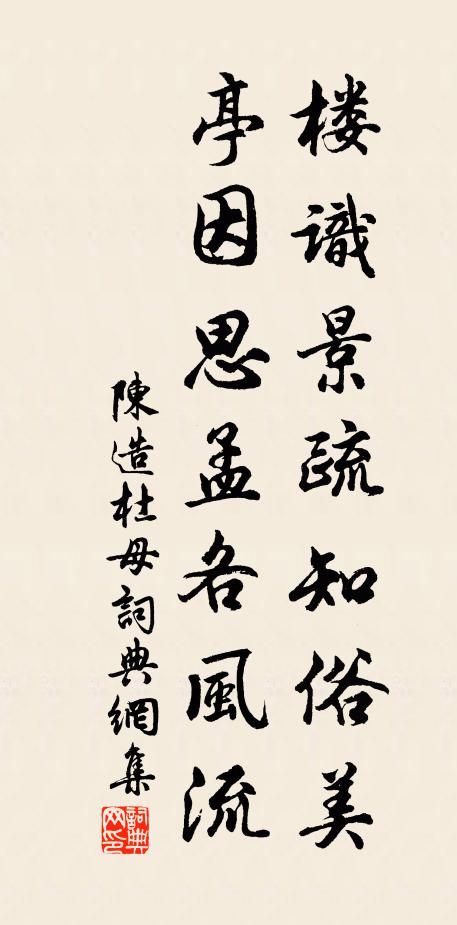 楼識景疏知俗美
亭因思孟各風流
陳造杜母詞典網集
詞典網印